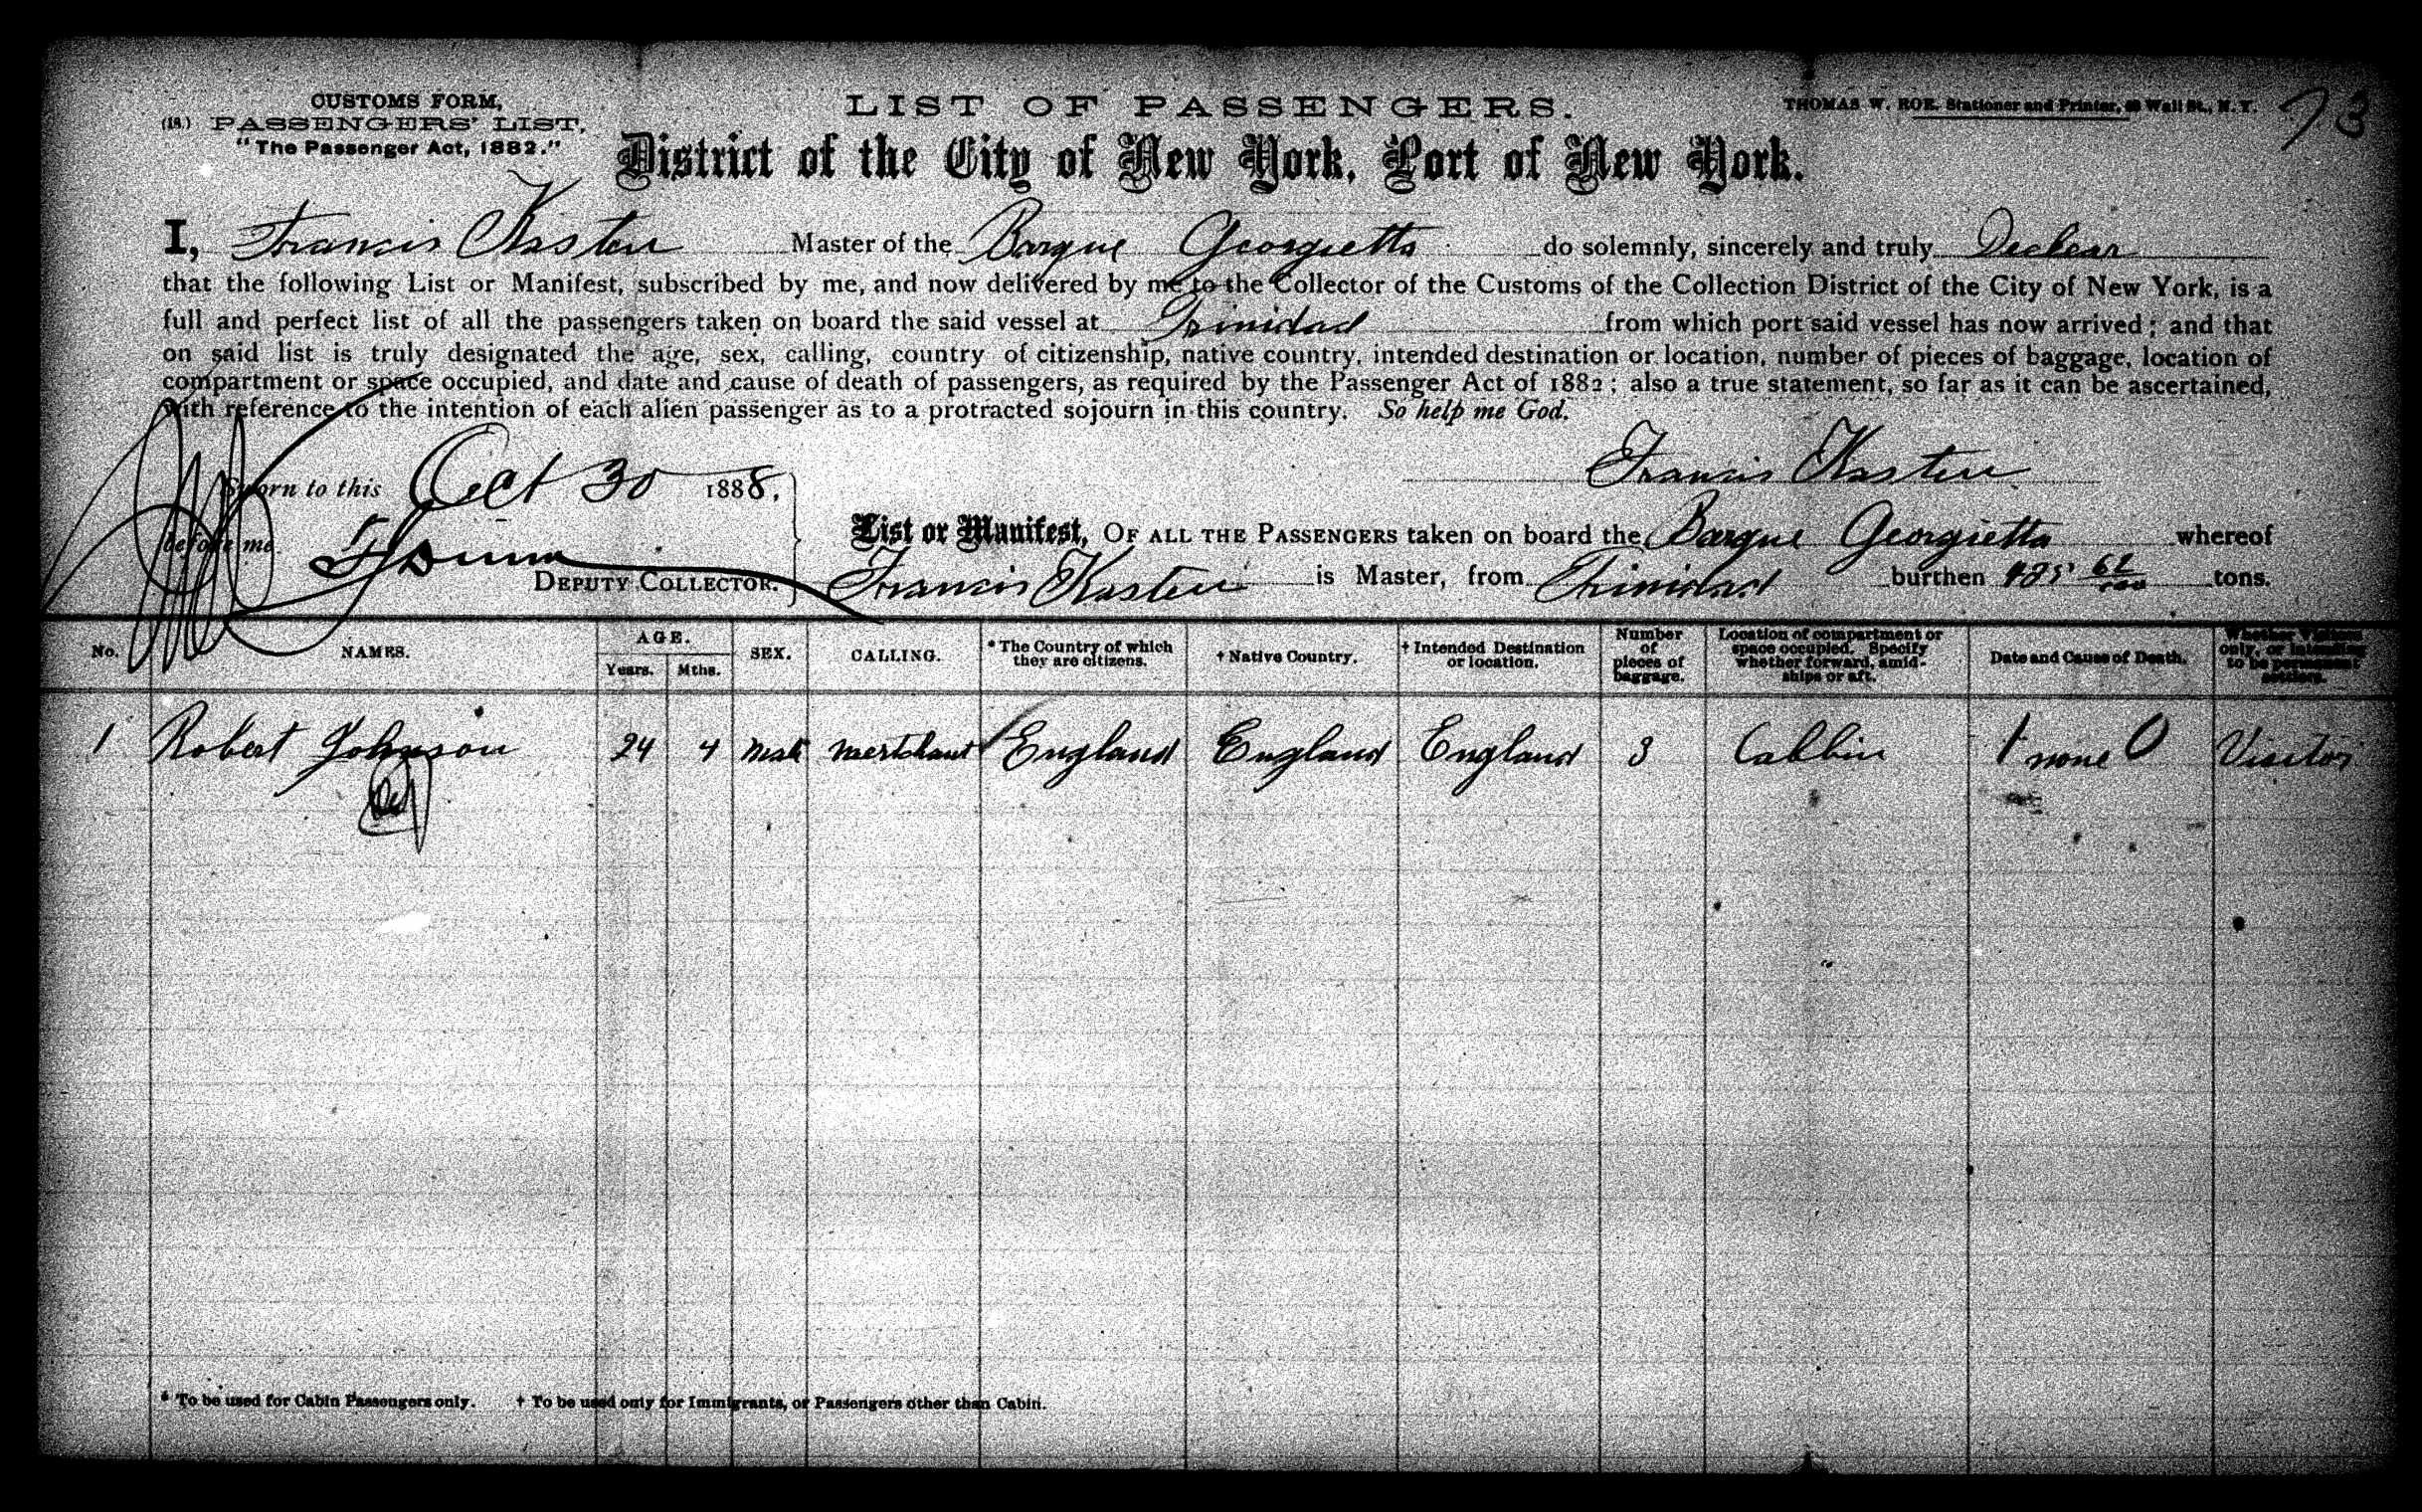 CUSTOMS FORM,
(18.) PASSENGERS' LIST,
"The Passenger Act, 1882."
LIST OF PASSENGERS.
THOMAS W. ROE, Stationer and Printer, Wall St., N. Y.
73
District of the City of New York, Port of New York.
I, Francis Kasten Master of the Barque Georgietta do solemnly, sincerely and truly Declear
that the following List or Manifest, subscribed by me, and now delivered by me to the Collector of the Customs of the Collection District of the City of New York, is a
full and perfect list of all the passengers taken on board the said vessel at Trinidad from which port said vessel has now arrived; and that
on said list is truly designated the age, sex, calling, country of citizenship, native country, intended destination or location, number of pieces of baggage, location of
compartment or space occupied, and date and cause of death of passengers, as required by the Passenger Act of 1882; also a true statement, so far as it can be ascertained,
with reference to the intention of each alien passenger as to a protracted sojourn in this country. So help me God.
Francis Kasten
Sworn to this Oct 30 1888,
before me
DEPUTY COLLECTOR.
List or Manifest, OF ALL THE PASSENGERS taken on board the Barque Georgietta whereof
Francis Kasten is Master, from Trinidad burthen 62/100 tons.
No. NAMES. AGE. Years. Mths. SEX. CALLING. * The Country of which they are citizens. † Native Country. † Intended Destination or location. Number of pieces of baggage. Location of compartment or space occupied. Specify whether forward, amidships or aft. Date and Cause of Death. Whether Visitors only, or intending to be permanent settlers.
1 Robert Johnson 24 4 Male merchant England England England 3 Cabbin none Visitor
* To be used for Cabin Passengers only. † To be used only for Immigrants, or Passengers other than Cabin.